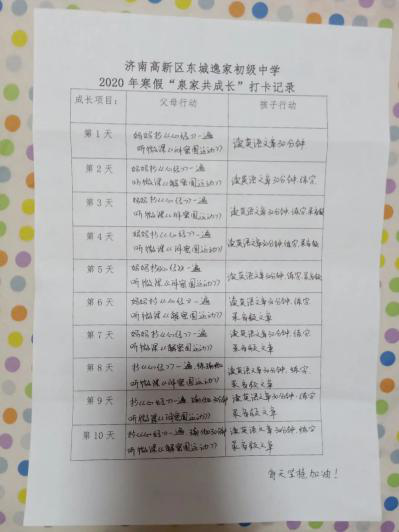 济南高新区东城逸家初级中学
2020年寒假“泉家共成长”打卡记录
成长项目： 父母行动 孩子行动
第1天 妈妈抄《心经》一遍 读英语文章30分钟
听微课《解密图运动》
第2天 妈妈抄《心经》一遍 读英语文章30分钟、练字
听微课《解密图运动》
第3天 妈妈抄《心经》一遍 读英语文章30分钟、练字、
听微课《解密图运动》
第4天 妈妈抄《心经》一遍 读英语文章30分钟、练字、
听微课《解密图运动》
第5天 妈妈抄《心经》一遍 读英语文章30分钟、练字
听微课《解密图运动》
第6天 妈妈抄《心经》一遍 读英语文章30分钟、练字
听微课《解密图运动》 文章
第7天 妈妈抄《心经》一遍 读英语文章30分钟、练字
听微课《解密图运动》 文章
第8天 抄《心经》一遍、练瑜伽 读英语文章30分钟、练字、
听微课《解密图运动》 文章
第9天 抄《心经》一遍、瑜伽30分钟 读英语文章30分钟、练字
听微课《解密图运动》 文章
第10天 抄《心经》一遍、瑜伽30分钟 读英语文章30分钟、练字
听微课《解密图运动》 文章
每天坚持加油！